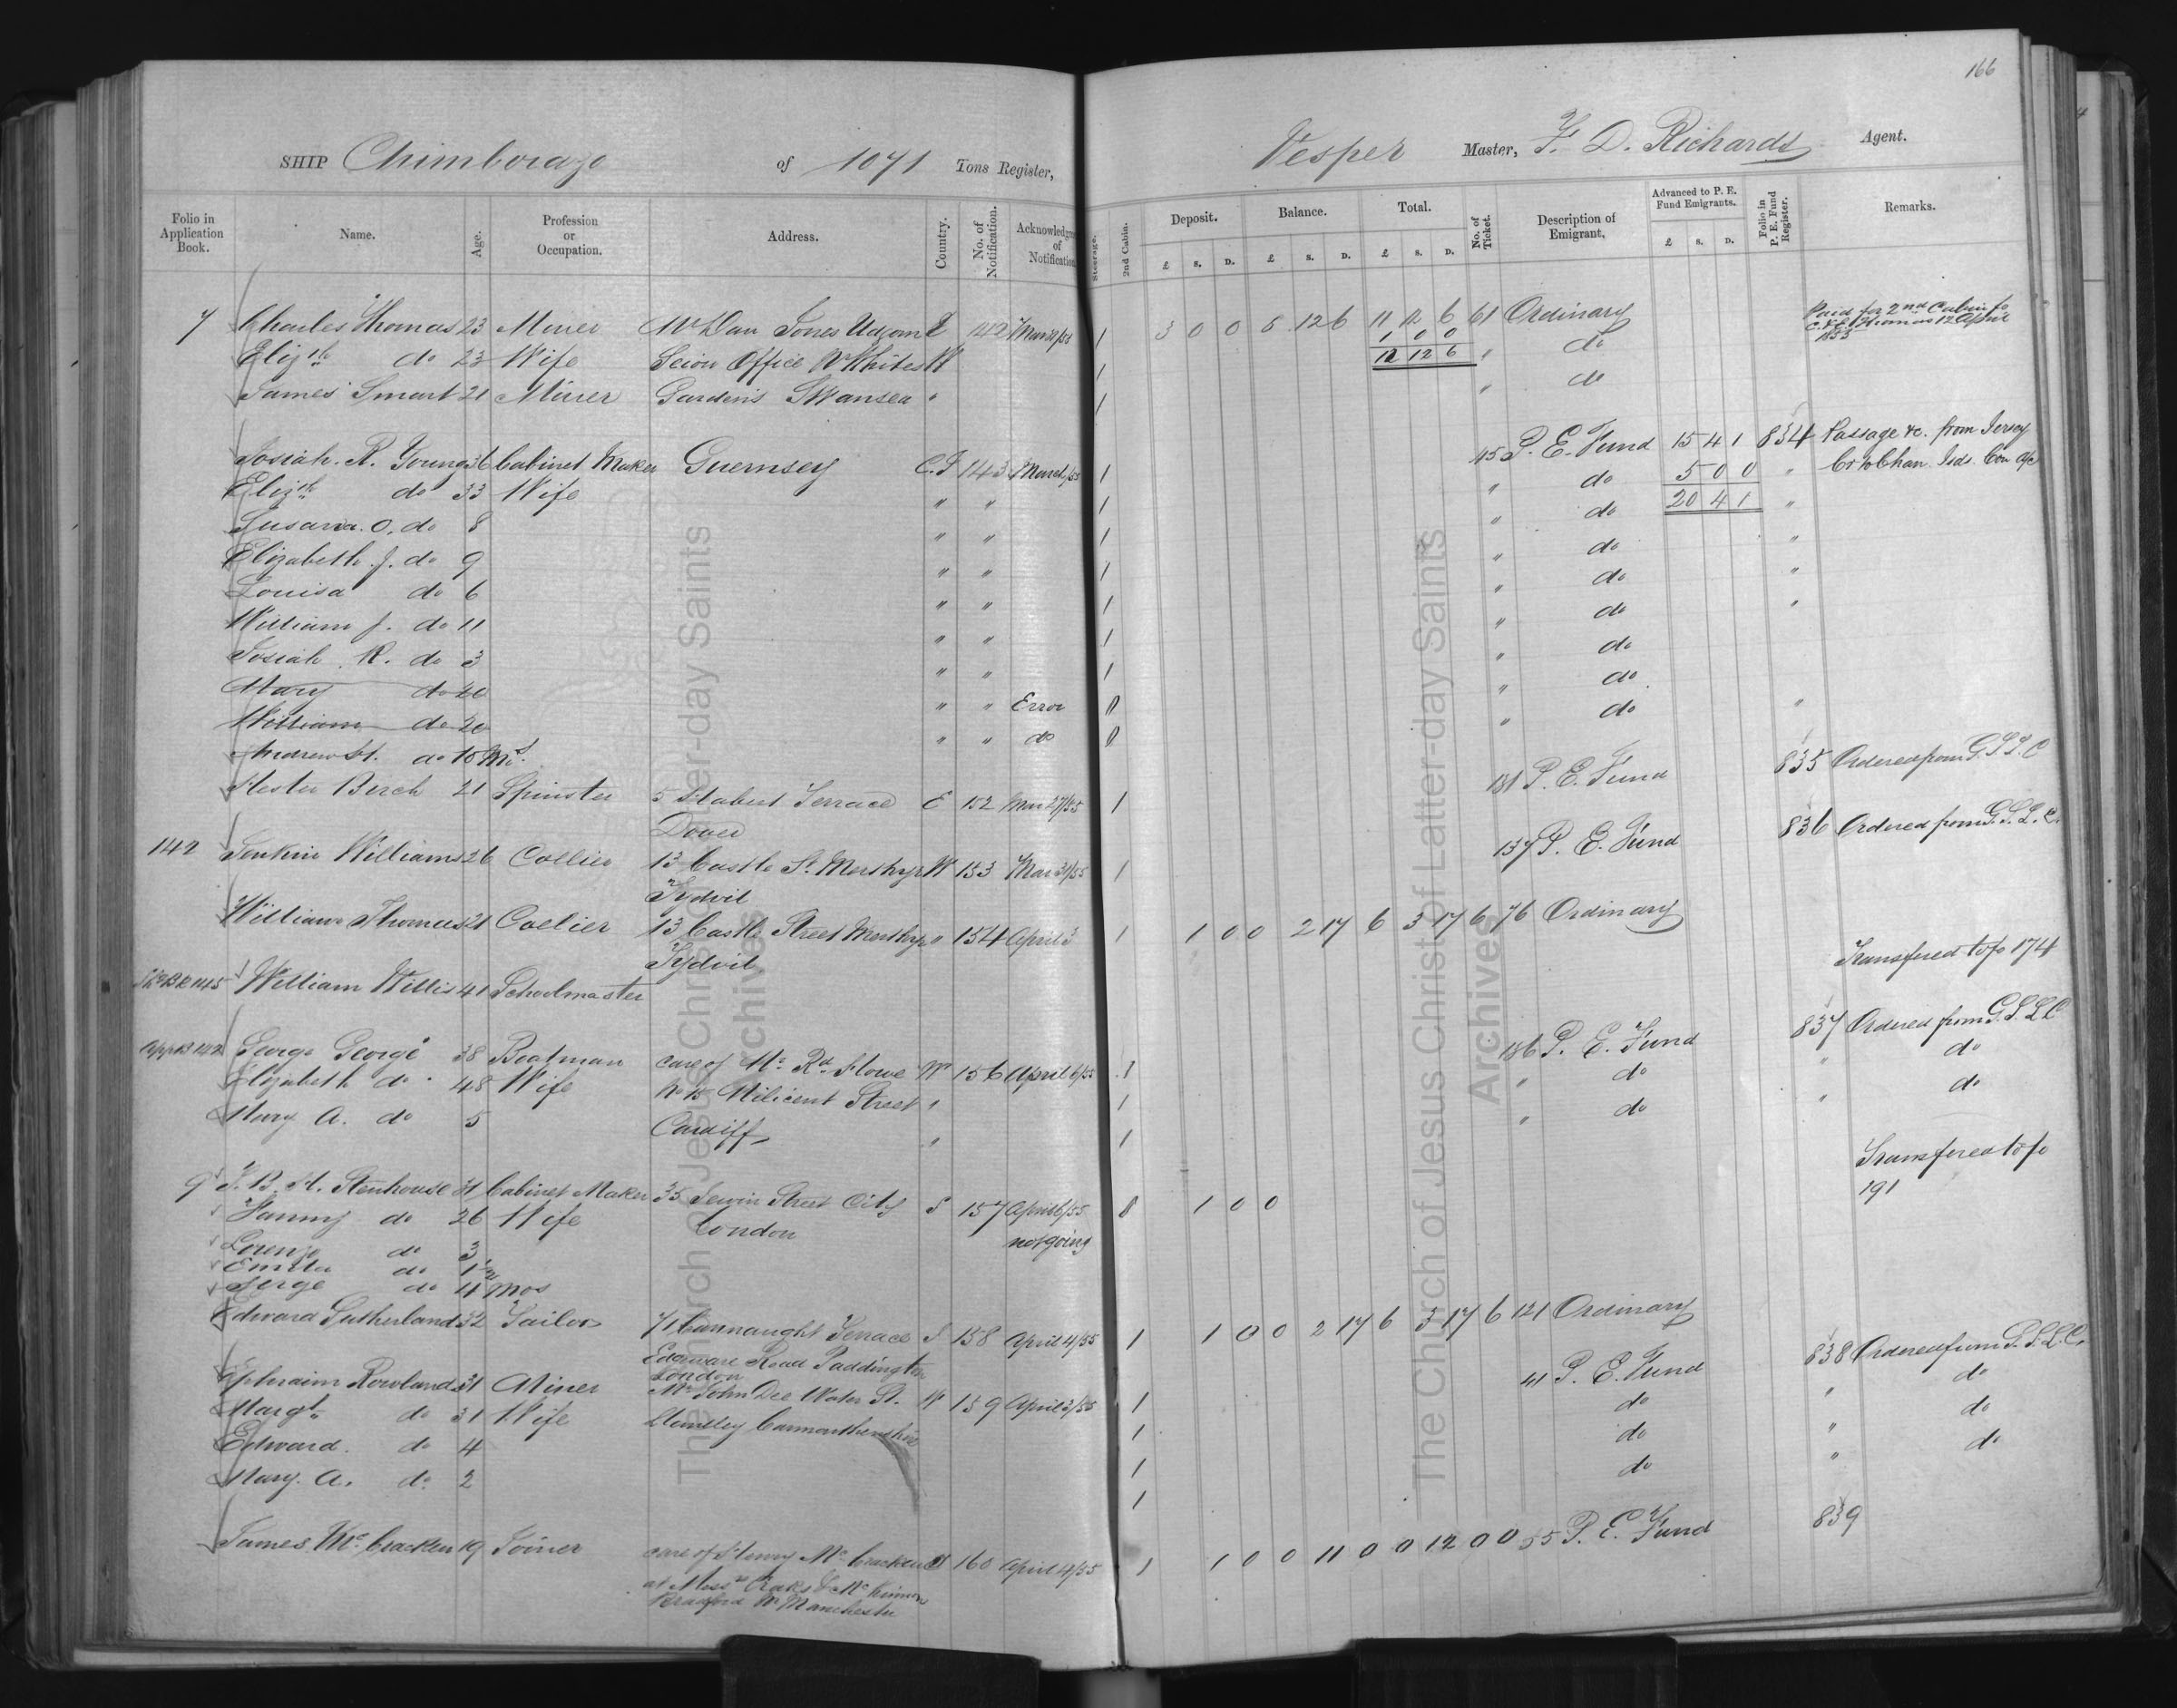 166
SHIP Chimborazo of 1071 Tons Register, Vesper Master, F. D. Richards Agent.
Folio in Application Book. Name. Age. Profession or Occupation. Address. Country. No. of Notification. Acknowledgm of Notification Steerage. 2nd Cabin. Deposit. £ s. D. Balance. £ s. D. Total. £ s. D. No. of Ticket. Description of Emigrant. Advanced to P. E. Fund Emigrants. £ s. D. Folio in P. E. Fund Register. Remarks.
7 Charles Thomas 23 Miner Mr Dan Jones 142 1 3 0 0 8 12 6 11 12 6 61 Ordinary Paid for 2nd Cabin
1 0 0 Thomas 12 April
Eliz.th do 23 Wife Office W 1 12 12 6 " do
James Smart 21 Miner Gardens Swansea " 1 " do
Josiah. R. Young 36 Cabinet Maker Guernsey C.I 143 1 45 P. E. Fund 15 4 1 834 Passage &c. from Jersey
Eliz.th do 33 Wife " " 1 " do 5 0 0 "
Susana. O. do 8 " " 1 " do 20 4 1 "
Elizabeth. J. do 9 " " 1 " do "
Louisa do 6 " " 1 " do "
William J. do 11 " " 1 " do "
Josiah R. do 3 " " 1 " do
Mary do 20 " " Error " do
William do 20 " " do " do "
Andrew do 10 Ms.
Hester Birch 21 Spinster 5 Terrace E 152 Mar 27/55 1 181 P. E. Fund 835 Ordered from G.S.L.C
Dover
142 Jenkin Williams 26 Collier 13 Castle St. Merthyr W 153 Mar 31/55 1 137 P. E. Fund 836 Ordered from G.S.L.C.
Tydvil
William Thomas 21 Collier 13 Castle Street Merthyr " 154 April 3 1 1 0 0 2 17 6 3 17 6 76 Ordinary
Tydvil
William Willis 41 Schoolmaster Transfered to fo 174
App B 142 George George 38 Boatman care of Mr. Rd. W 156 April 6/55 1 186 P. E. Fund 837 Ordered from G.S.L.C
Elizabeth do 48 Wife No 15 Milicent Street " 1 " do " do
Mary A. do 5 Cardiff " 1 " do " do
9 T. B. H. Stenhouse 31 Cabinet Maker 35 Jewin Street City S 157 April 6/55 1 0 0 Transfered to fo
191
Fanny do 26 Wife London not going
Lorenzo do 3
do 1½
do 4 Mos
Edward Sutherland 32 Tailor 71 Connaught Terrace S 158 April 4/55 1 1 0 0 2 17 6 3 17 6 121 Ordinary
Edgware Road Paddington
London
Ephraim Rowland 31 Miner Mr John Dee Water St. W 159 April 3/55 1 41 P. E. Fund 838 Ordered from G.S.L.C.
Margt. do 31 Wife Llanelley Carmarthenshire 1 do " do
Edward. do 4 1 do " do
Mary. A. do 2 1 do " do
James McCracken 19 Joiner care of Henry McCracken 160 April 1 1 0 0 11 0 0 12 0 0 55 P. E. Fund 839
at Messrs
Bradford Manchester
The Church of Jesus Christ of Latter-day Saints
Archives
The Church of Jesus Christ of Latter-day Saints
Archives